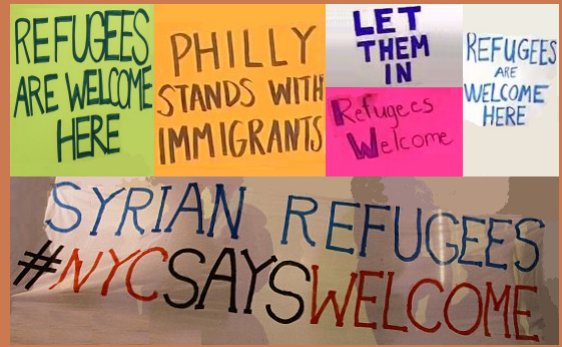 REFUGEES
ARE WELCOME
HERE
PHILLY
STANDS WITH
IMMIGRANTS
LET
THEM
IN
Refugees
Welcome
REFUGEES
ARE
WELCOME
HERE
SYRIAN REFUGEES
#NYCSAYSWELCOME